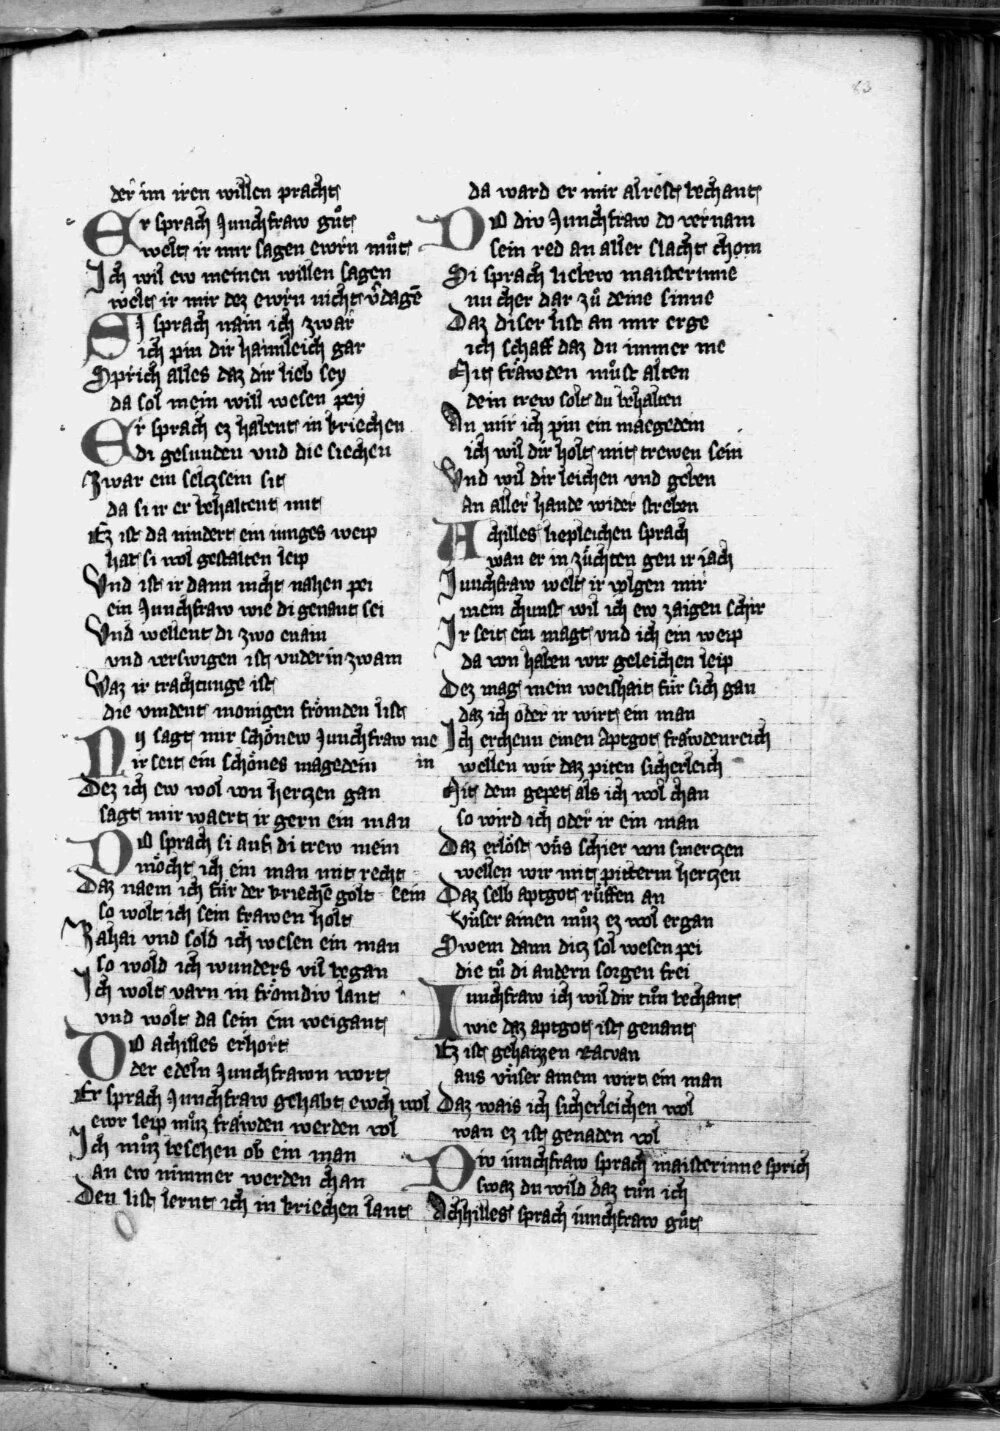 63
der im iren willen pracht
Er sprach Junchfraw guͦt
welt ir mir sagen ewrn muͦt
Ich wil ew meinen willen sagen
welt ir mir dez ewrn nicht v̓dagē
Si sprach nain ich zwar
ich pin dir haimleich gar
Sprich alles daz dir lieb sey
da sol mein will wesen pey
Er sprach ez habent in kriechen
di gesunden vnd die siechen
Zwar ein seltzsein sit
da si ir er behaltent mit
Ez ist da nindert ein iunges weip
hat si wol gestalten leip
Vnd ist ir dann nicht nahen pei
ein Junchfraw wie di genant sei
Vnd wellent di zwo enain
vnd verswigen ist vnder in zwain
Waz ir trachtunge ist
die vindent monigen froͤmden list
Nu sagt mir schoͤnew Junchfraw me
ir seit ein schoͤnes magedein in
Dez ich ew wol von hertzen gan
sagt mir waert ir gern ein man
Do sprach si auf di trew mein
moͤcht ich ein man mit recht sein
Daz naem ich fuͤr der kriechē golt
so wolt ich sein frawen holt
Zahai vnd sold ich wesen ein man
so wold ich wunders vil began
Ich wolt varn in froͤmdiv lant
vnd wolt da sein ein weigant
Do achilles erhort
der edeln Junchfrawn wort
Er sprach Junchfraw gehabt ewch wol
ewr leip muͦz fraͤwden werden vol
Ich muͦz besehen ob ein man
an ew nimmer werden chan
Den list lernt ich in kriechen lant
da ward er mir alrest bechant
Do div Junchfraw do vernam
sein red an aller slacht chom
Si sprach liebew maisterinne
nu cher dar zuͦ deine sinne
Daz diser list an mir erge
ich schaff daz du immer me
Mit fraͤwden muͦst alten
dein trew solt du behalten
An mir ich pin ein maegedein
ich wil dir holt mit trewen sein
Vnd wil dir leichen vnd geben
an aller hande wider streben
Achilles liepleichen sprach
wan er in zuͤchten gen ir iach
Junchfraw welt ir volgen mir
mein chunst wil ich ew zaigen schir
Ir seit ein magt vnd ich ein weip
da von haben wir geleichen leip
Dez mag mein weishait fuͤr sich gan
daz ich oder ir wirt ein man
Ich erchenn einen Aptgot fraͤwdenreich
wellen wir daz piten sicherleich
Mit dem gepet als ich wol chan
so wird ich oder ir ein man
Daz erloͤst vns schier von smertzen
wellen wir mit pitterm hertzen
Daz selb aptgot ruͤffen an
Vnser ainen muͦz ez wol ergan
Swem dann ditz sol wesen pei
die tuͦ di andern sorgen frei
Junchfraw ich wil dir tuͦn bechant
wie daz aptgot ist genant
Ez ist gehaizzen Ratvan
aus vnser ainem wirt ein man
Daz wais ich sicherleichen wol
wan ez ist genaden vol
Div iunchfraw sprach maisterinne sprich
swaz du wild daz tuͦn ich
Achilles sprach iunchfraw guͦt